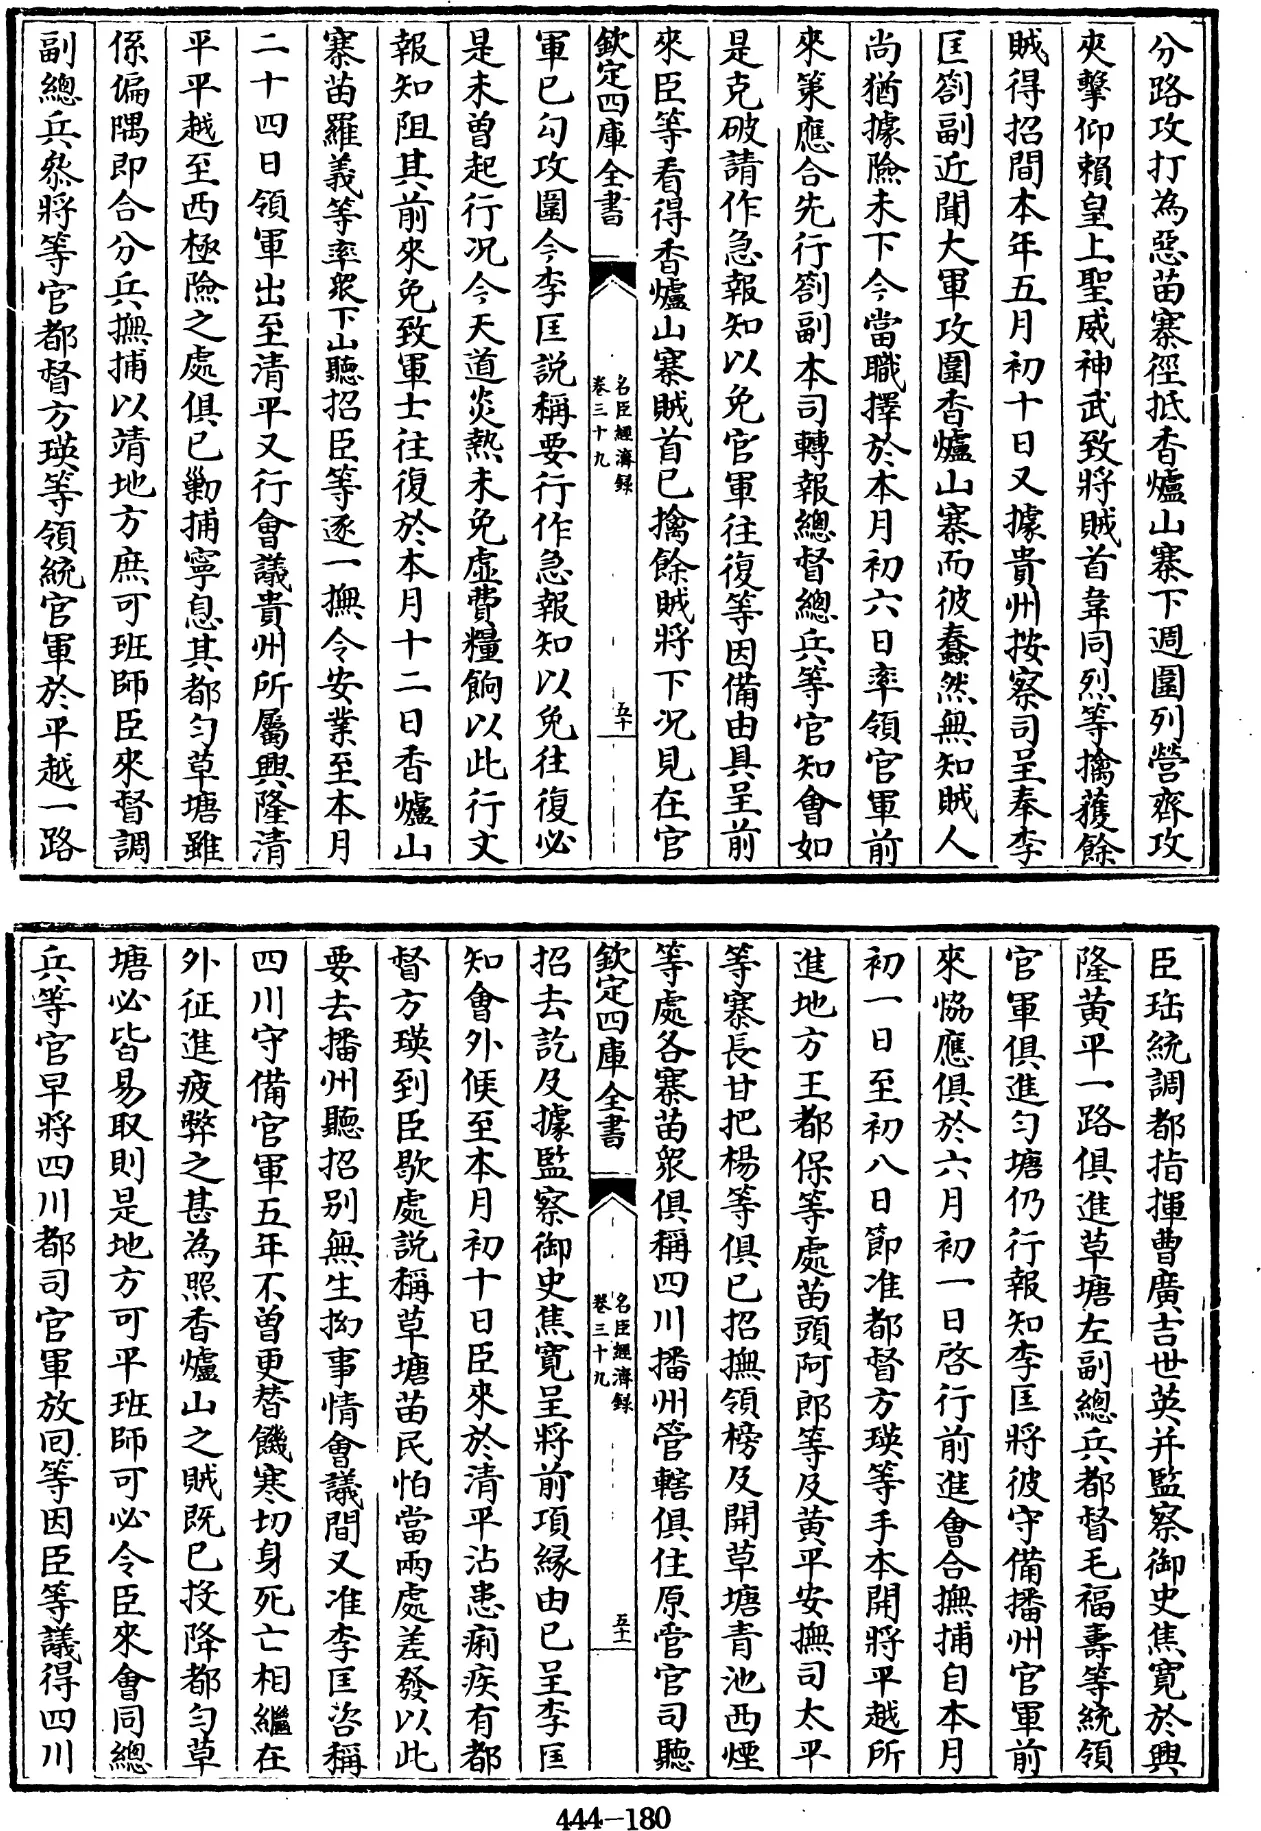 分路攻打為惡苗寨徑抵香爐山寨下週圍列營齊攻
夾擊仰賴皇上聖威神武致將賊首韋同烈等擒獲餘
賊得招間本年五月初十日又據貴州按察司呈奉李
匡劄副近聞大軍攻圍香爐山寨而彼蠢然無知賊人
尚猶據險未下今當職擇於本月初六日率領官軍前
來策應合先行劄副本司轉報總督總兵等官知會如
是克破請作急報知以免官軍往復等因備由具呈前
來臣等看得香爐山寨賊首已擒餘賊將下况見在官
欽定四庫全書
名臣經濟録
卷三十九
五十
軍已勾攻圍今李匡説稱要行作急報知以免往復必
是未曽起行况今天道炎熱未免虛費糧餉以此行文
報知阻其前來免致軍士往復於本月十二日香爐山
寨苗羅義等率衆下山聽招臣等逐一撫令安業至本月
二十四日領軍出至清平又行會議貴州所屬興隆清
平平越至西極險之處俱已勦捕寧息其都匀草塘雖
係偏隅即合分兵撫捕以靖地方庶可班師臣來督調
副總兵叅將等官都督方瑛等領統官軍於平越一路
臣珤統調都指揮曹廣吉世英并監察御史焦寛於興
隆黄平一路俱進草塘左副總兵都督毛福壽等統領
官軍俱進匀塘仍行報知李匡將彼守備播州官軍前
來恊應俱於六月初一日啓行前進會合撫捕自本月
初一日至初八日節准都督方瑛等手本開將平越所
進地方王都保等處苗頭阿郎等及黄平安撫司太平
等寨長甘把楊等俱已招撫領榜及開草塘青池西煙
等處各寨苗衆俱稱四川播州管轄俱住原管官司聽
欽定四庫全書
名臣經濟録
卷三十九
五十一
招去訖及據監察御史焦寛呈將前項縁由已呈李匡
知會外候至本月初十日臣來於清平沾患痢疾有都
督方瑛到臣歇處説稱草塘苗民怕當兩處差發以此
要去播州聽招别無生拗事情會議間又准李匡咨稱
四川守備官軍五年不曽更替饑寒切身死亡相繼在
外征進疲弊之甚為照香爐山之賊既已投降都匀草
塘必皆易取則是地方可平班師可必令臣來會同總
兵等官早將四川都司官軍放回等因臣等議得四川
444-180